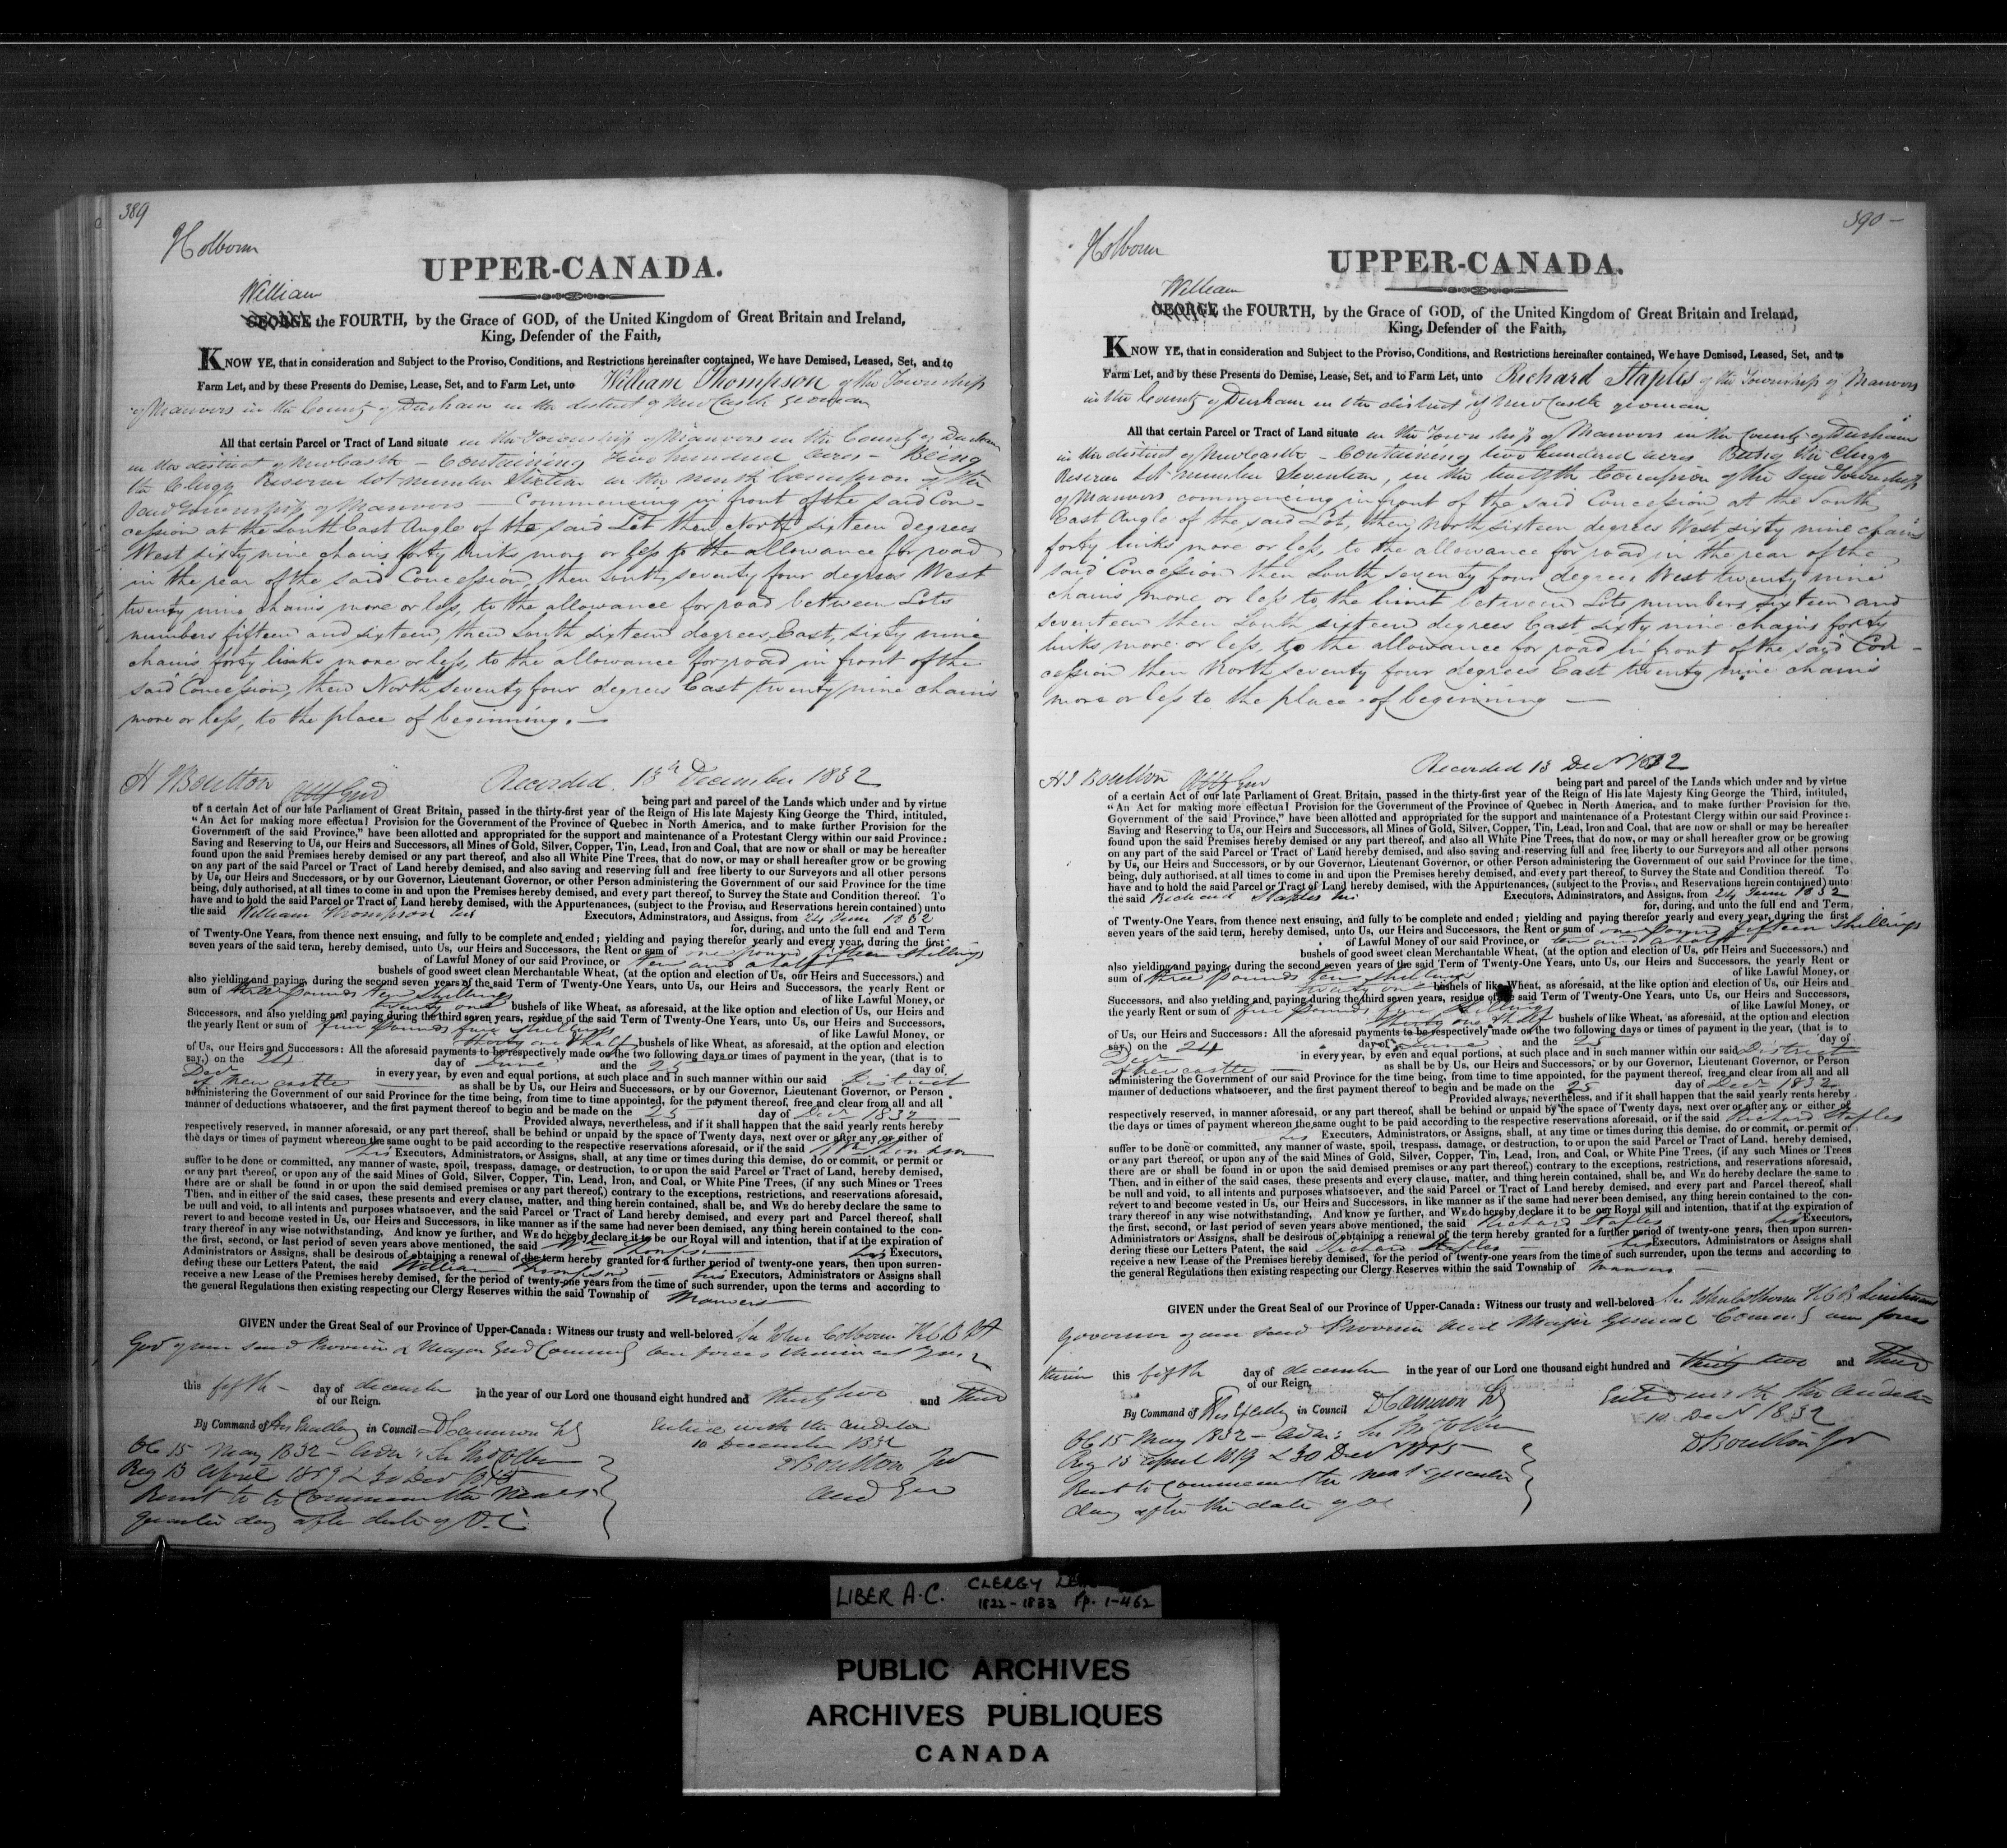 389
Holborn
UPPER-CANADA.
William
GEORGE the FOURTH, by the Grace of GOD, of the United Kingdom of Great Britain and Ireland,
King, Defender of the Faith,
KNOW YE, that in consideration and Subject to the Proviso, Conditions, and Restrictions hereinafter contained, We have Demised, Leased, Set, and to
Farm Let, and by these Presents do Demise, Lease, Set, and to Farm Let, unto William Thompson of the Township
of Manvers in the County of Durham in the district of Newcastle yeoman
All that certain Parcel or Tract of Land situate in the Township of Manvers in the County of Durham
in the district of Newcastle – Containing two hundred acres – Being
the Clergy Reserve lot number Sixteen in the ninth Concession of the
said Township of Manvers – Commencing in front of the said Con-
cession at the South East Angle of the said Lot then North sixteen degrees
West sixty nine chains forty links more or less to the allowance for road
in the rear of the said Concession, then South seventy four degrees West
twenty nine chains more or less, to the allowance for road between Lots
numbers fifteen and sixteen, then South sixteen degrees East, sixty nine
chains forty links more or less, to the allowance for road in front of the
said Concession, then North seventy four degrees East twenty nine chains
more or less, to the place of beginning. –
H Boulton Atty Genl Recorded 13th December 1832
being part and parcel of the Lands which under and by virtue
of a certain Act of our late Parliament of Great Britain, passed in the thirty-first year of the Reign of His late Majesty King George the Third, intituled,
“An Act for making more effectual Provision for the Government of the Province of Quebec in North America, and to make further Provision for the
Government of the said Province,” have been allotted and appropriated for the support and maintenance of a Protestant Clergy within our said Province:
Saving and Reserving to Us, our Heirs and Successors, all Mines of Gold, Silver, Copper, Tin, Lead, Iron and Coal, that are now or shall or may be hereafter
found upon the said Premises hereby demised or any part thereof, and also all White Pine Trees, that do now, or may or shall hereafter grow or be growing
on any part of the said Parcel or Tract of Land hereby demised, and also saving and reserving full and free liberty to our Surveyors and all other persons
by Us, our Heirs and Successors, or by our Governor, Lieutenant Governor, or other Person administering the Government of our said Province for the time
being, duly authorised, at all times to come in and upon the Premises hereby demised, and every part thereof, to Survey the State and Condition thereof. To
have and to hold the said Parcel or Tract of Land hereby demised, with the Appurtenances, (subject to the Proviso, and Reservations herein contained) unto
the said William Thompson his Executors, Adminstrators, and Assigns, from 24 June 1832
for, during, and unto the full end and Term
of Twenty-One Years, from thence next ensuing, and fully to be complete and ended; yielding and paying therefor yearly and every year, during the first
seven years of the said term, hereby demised, unto Us, our Heirs and Successors, the Rent or sum of one pound fifteen shillings
of Lawful Money of our said Province, or ten and a half
bushels of good sweet clean Merchantable Wheat, (at the option and election of Us, our Heirs and Successors,) and
also yielding and paying, during the second seven years of the said Term of Twenty-One Years, unto Us, our Heirs and Successors, the yearly Rent or
sum of three pounds ten shillings of like Lawful Money, or
twenty one bushels of like Wheat, as aforesaid, at the like option and election of Us, our Heirs and
Successors, and also yielding and paying during the third seven years, residue of the said Term of Twenty-One Years, unto Us, our Heirs and Successors,
the yearly Rent or sum of five pounds five shillings of like Lawful Money, or
thirty one & half bushels of like Wheat, as aforesaid, at the option and election
of Us, our Heirs and Successors: All the aforesaid payments to be respectively made on the two following days or times of payment in the year, (that is to
say,) on the 24 day of June and the 25 day of
Decr in every year, by even and equal portions, at such place and in such manner within our said District
of Newcastle as shall be by Us, our Heirs and Successors, or by our Governor, Lieutenant Governor, or Person
administering the Government of our said Province for the time being, from time to time appointed, for the payment thereof, free and clear from all and all
manner of deductions whatsoever, and the first payment thereof to begin and be made on the 25 day of Decr 1832
Provided always, nevertheless, and if it shall happen that the said yearly rents hereby
respectively reserved, in manner aforesaid, or any part thereof, shall be behind or unpaid by the space of Twenty days, next over or after any or either of
the days or times of payment whereon the same ought to be paid according to the respective reservations aforesaid, or if the said Wm Thompson
his Executors, Administrators, or Assigns, shall, at any time or times during this demise, do or commit, or permit or
suffer to be done or committed, any manner of waste, spoil, trespass, damage, or destruction, to or upon the said Parcel or Tract of Land, hereby demised,
or any part thereof, or upon any of the said Mines of Gold, Silver, Copper, Tin, Lead, Iron, and Coal, or White Pine Trees, (if any such Mines or Trees
there are or shall be found in or upon the said demised premises or any part thereof,) contrary to the exceptions, restrictions, and reservations aforesaid,
Then, and in either of the said cases, these presents and every clause, matter, and thing herein contained, shall be, and WE do hereby declare the same to
be null and void, to all intents and purposes whatsoever, and the said Parcel or Tract of Land hereby demised, and every part and Parcel thereof, shall
revert to and become vested in Us, our Heirs and Successors, in like manner as if the same had never been demised, any thing herein contained to the con-
trary thereof in any wise notwithstanding. And know ye further, and WE do hereby declare it to be our Royal will and intention, that if at the expiration of
the first, second, or last period of seven years above mentioned, the said Wm Thompson his Executors,
Administrators or Assigns, shall be desirous of obtaining a renewal of the term hereby granted for a further period of twenty-one years, then upon surren-
dering these our Letters Patent, the said William Thompson – his Executors, Administrators or Assigns shall
receive a new Lease of the Premises hereby demised, for the period of twenty-one years from the time of such surrender, upon the terms and according to
the general Regulations then existing respecting our Clergy Reserves within the said Township of Manvers
GIVEN under the Great Seal of our Province of Upper-Canada: Witness our trusty and well-beloved Sir John Colborne KCB Lt
Govr of our said Province & Major Genl Commg our forces therein
this fifth – day of december in the year of our Lord one thousand eight hundred and thirty two and Third
of our Reign.
By Command of His Excellency in Council D Cameron Entered with the Auditor
OC 15 May 1832 – Adm: 10 December 1832
Reg 13 April 1819 & 30 Decr 1815 D Boulton Jr
Rent to commence the next Aud Gen
quarter day after date of O.C.
390 –
Holborn
UPPER-CANADA.
William
GEORGE the FOURTH, by the Grace of GOD, of the United Kingdom of Great Britain and Ireland,
King, Defender of the Faith,
KNOW YE, that in consideration and Subject to the Proviso, Conditions, and Restrictions hereinafter contained, We have Demised, Leased, Set, and to
Farm Let, and by these Presents do Demise, Lease, Set, and to Farm Let, unto Richard Staples of the Township of Manvers
in the County of Durham in the district of Newcastle yeoman
All that certain Parcel or Tract of Land situate in the Township of Manvers in the County of Durham
in the district of Newcastle – Containing two hundred acres Being the Clergy
Reserve Lot number Seventeen, in the twelfth Concession of the said Township
of Manvers commencing in front of the said Concession, at the South
East Angle of the said Lot, then North sixteen degrees West, sixty nine chains
forty links more or less, to the allowance for road in the rear of the
said Concession then South seventy four degrees West twenty nine
chains more or less to the limit between Lots numbers sixteen and
seventeen then South sixteen degrees East, sixty nine chains forty
links more or less, to the allowance for road in front of the said Con-
cession then North seventy four degrees East twenty nine chains
more or less to the place of beginning –
H J Boulton Atty Genl Recorded 13 Decr 1832
being part and parcel of the Lands which under and by virtue
of a certain Act of our late Parliament of Great Britain, passed in the thirty-first year of the Reign of His late Majesty King George the Third, intituled,
“An Act for making more effectual Provision for the Government of the Province of Quebec in North America, and to make further Provision for the
Government of the said Province,” have been allotted and appropriated for the support and maintenance of a Protestant Clergy within our said Province:
Saving and Reserving to Us, our Heirs and Successors, all Mines of Gold, Silver, Copper, Tin, Lead, Iron and Coal, that are now or shall or may be hereafter
found upon the said Premises hereby demised or any part thereof, and also all White Pine Trees, that do now, or may or shall hereafter grow or be growing
on any part of the said Parcel or Tract of Land hereby demised, and also saving and reserving full and free liberty to our Surveyors and all other persons
by Us, our Heirs and Successors, or by our Governor, Lieutenant Governor, or other Person administering the Government of our said Province for the time
being, duly authorised, at all times to come in and upon the Premises hereby demised, and every part thereof, to Survey the State and Condition thereof. To
have and to hold the said Parcel or Tract of Land hereby demised, with the Appurtenances, (subject to the Proviso, and Reservations herein contained) unto
the said Richard Staples his Executors, Adminstrators, and Assigns, from 24 June 1832
for, during, and unto the full end and Term,
of Twenty-One Years, from thence next ensuing, and fully to be complete and ended; yielding and paying therefor yearly and every year, during the first
seven years of the said term, hereby demised, unto Us, our Heirs and Successors, the Rent or sum of one pound fifteen shillings
of Lawful Money of our said Province, or ten and a half
bushels of good sweet clean Merchantable Wheat, (at the option and election of Us, our Heirs and Successors,) and
also yielding and paying, during the second seven years of the said Term of Twenty-One Years, unto Us, our Heirs and Successors, the yearly Rent or
sum of three pounds ten shillings of like Lawful Money, or
twenty one bushels of like Wheat, as aforesaid, at the like option and election of Us, our Heirs and
Successors, and also yielding and paying during the third seven years, residue of the said Term of Twenty-One Years, unto Us, our Heirs and Successors,
the yearly Rent or sum of five pounds five shillings of like Lawful Money, or
thirty one & half bushels of like Wheat, as aforesaid, at the option and election
of Us, our Heirs and Successors: All the aforesaid payments to be respectively made on the two following days or times of payment in the year, (that is to
say,) on the 24 day of June and the 25 day of
Decr in every year, by even and equal portions, at such place and in such manner within our said District
of Newcastle – as shall be by Us, our Heirs and Successors, or by our Governor, Lieutenant Governor, or Person
administering the Government of our said Province for the time being, from time to time appointed, for the payment thereof, free and clear from all and all
manner of deductions whatsoever, and the first payment thereof to begin and be made on the 25 day of Decr 1832
Provided always, nevertheless, and if it shall happen that the said yearly rents hereby
respectively reserved, in manner aforesaid, or any part thereof, shall be behind or unpaid by the space of Twenty days, next over or after any or either of
the days or times of payment whereon the same ought to be paid according to the respective reservations aforesaid, or if the said Richard Staples
his Executors, Administrators, or Assigns, shall, at any time or times during this demise, do or commit, or permit or
suffer to be done or committed, any manner of waste, spoil, trespass, damage, or destruction, to or upon the said Parcel or Tract of Land, hereby demised,
or any part thereof, or upon any of the said Mines of Gold, Silver, Copper, Tin, Lead, Iron, and Coal, or White Pine Trees, (if any such Mines or Trees
there are or shall be found in or upon the said demised premises or any part thereof,) contrary to the exceptions, restrictions, and reservations aforesaid,
Then, and in either of the said cases, these presents and every clause, matter, and thing herein contained, shall be, and WE do hereby declare the same to
be null and void, to all intents and purposes whatsoever, and the said Parcel or Tract of Land hereby demised, and every part and Parcel thereof, shall
revert to and become vested in Us, our Heirs and Successors, in like manner as if the same had never been demised, any thing herein contained to the con-
trary thereof in any wise notwithstanding. And know ye further, and WE do hereby declare it to be our Royal will and intention, that if at the expiration of
the first, second, or last period of seven years above mentioned, the said Richard Staples his Executors,
Administrators or Assigns, shall be desirous of obtaining a renewal of the term hereby granted for a further period of twenty-one years, then upon surren-
dering these our Letters Patent, the said Richard Staples – his Executors, Administrators or Assigns shall
receive a new Lease of the Premises hereby demised, for the period of twenty-one years from the time of such surrender, upon the terms and according to
the general Regulations then existing respecting our Clergy Reserves within the said Township of Manvers –
GIVEN under the Great Seal of our Province of Upper-Canada: Witness our trusty and well-beloved Sir John Colborne KCB Lieutenant
Governor of our said Province and Major General Commg our forces
therein this fifth day of december in the year of our Lord one thousand eight hundred and thirty two and Third
of our Reign,
By Command of His Excelly in Council D Cameron Entered with the Auditor
OC 15 May 1832 – Adm: 10 Decr 1832
Reg 13 April 1819 & 30 Decr 1815 D Boulton Jr
Rent to commence the next quarter
day after the date of OC
LIBER A.C. CLERGY
1822-1833 Pp. 1-462
PUBLIC ARCHIVES
ARCHIVES PUBLIQUES
CANADA